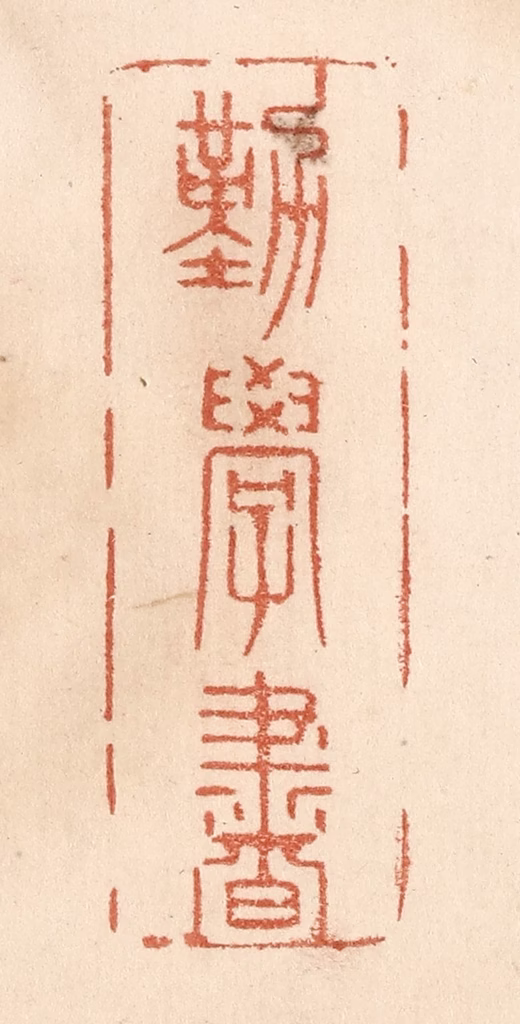 勤學書